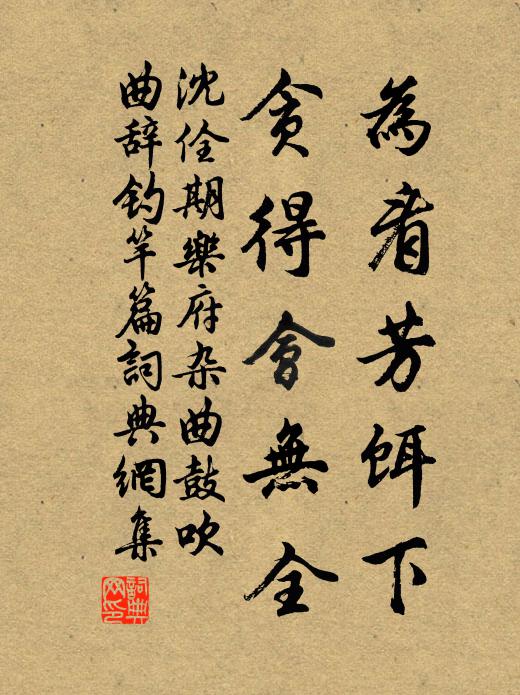 為看芳餌下
貪得會無全
沈佺期樂府杂曲鼓吹
曲辞钓竿篇詞典網集
詞典网印